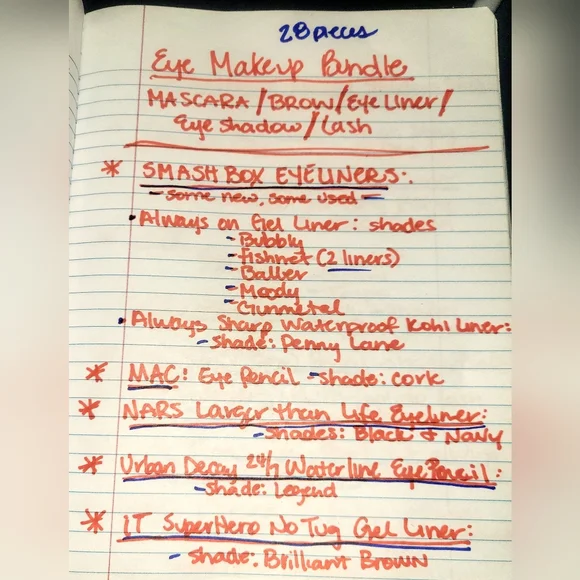 28 pieces
Eye Makeup Bundle
MASCARA / BROW / Eye Liner /
Eye Shadow / Lash
* SMASH BOX EYELINERS:.
- some new, some used -
• Always on Gel Liner: shades
- Bubbly
- fishnet (2 liners)
- Baller
- Moody
- Gunmetal
• Always Sharp Waterproof Kohl Liner:
- shade: Penny Lane
* MAC: Eye Pencil - shade: cork
* NARS Larger than Life Eyeliner:
- shades: Black & Navy
* Urban Decay 24/7 Waterline Eye Pencil:
- shade: Legend
* IT SuperHero No Tug Gel Liner:
- shade: Brilliant Brown